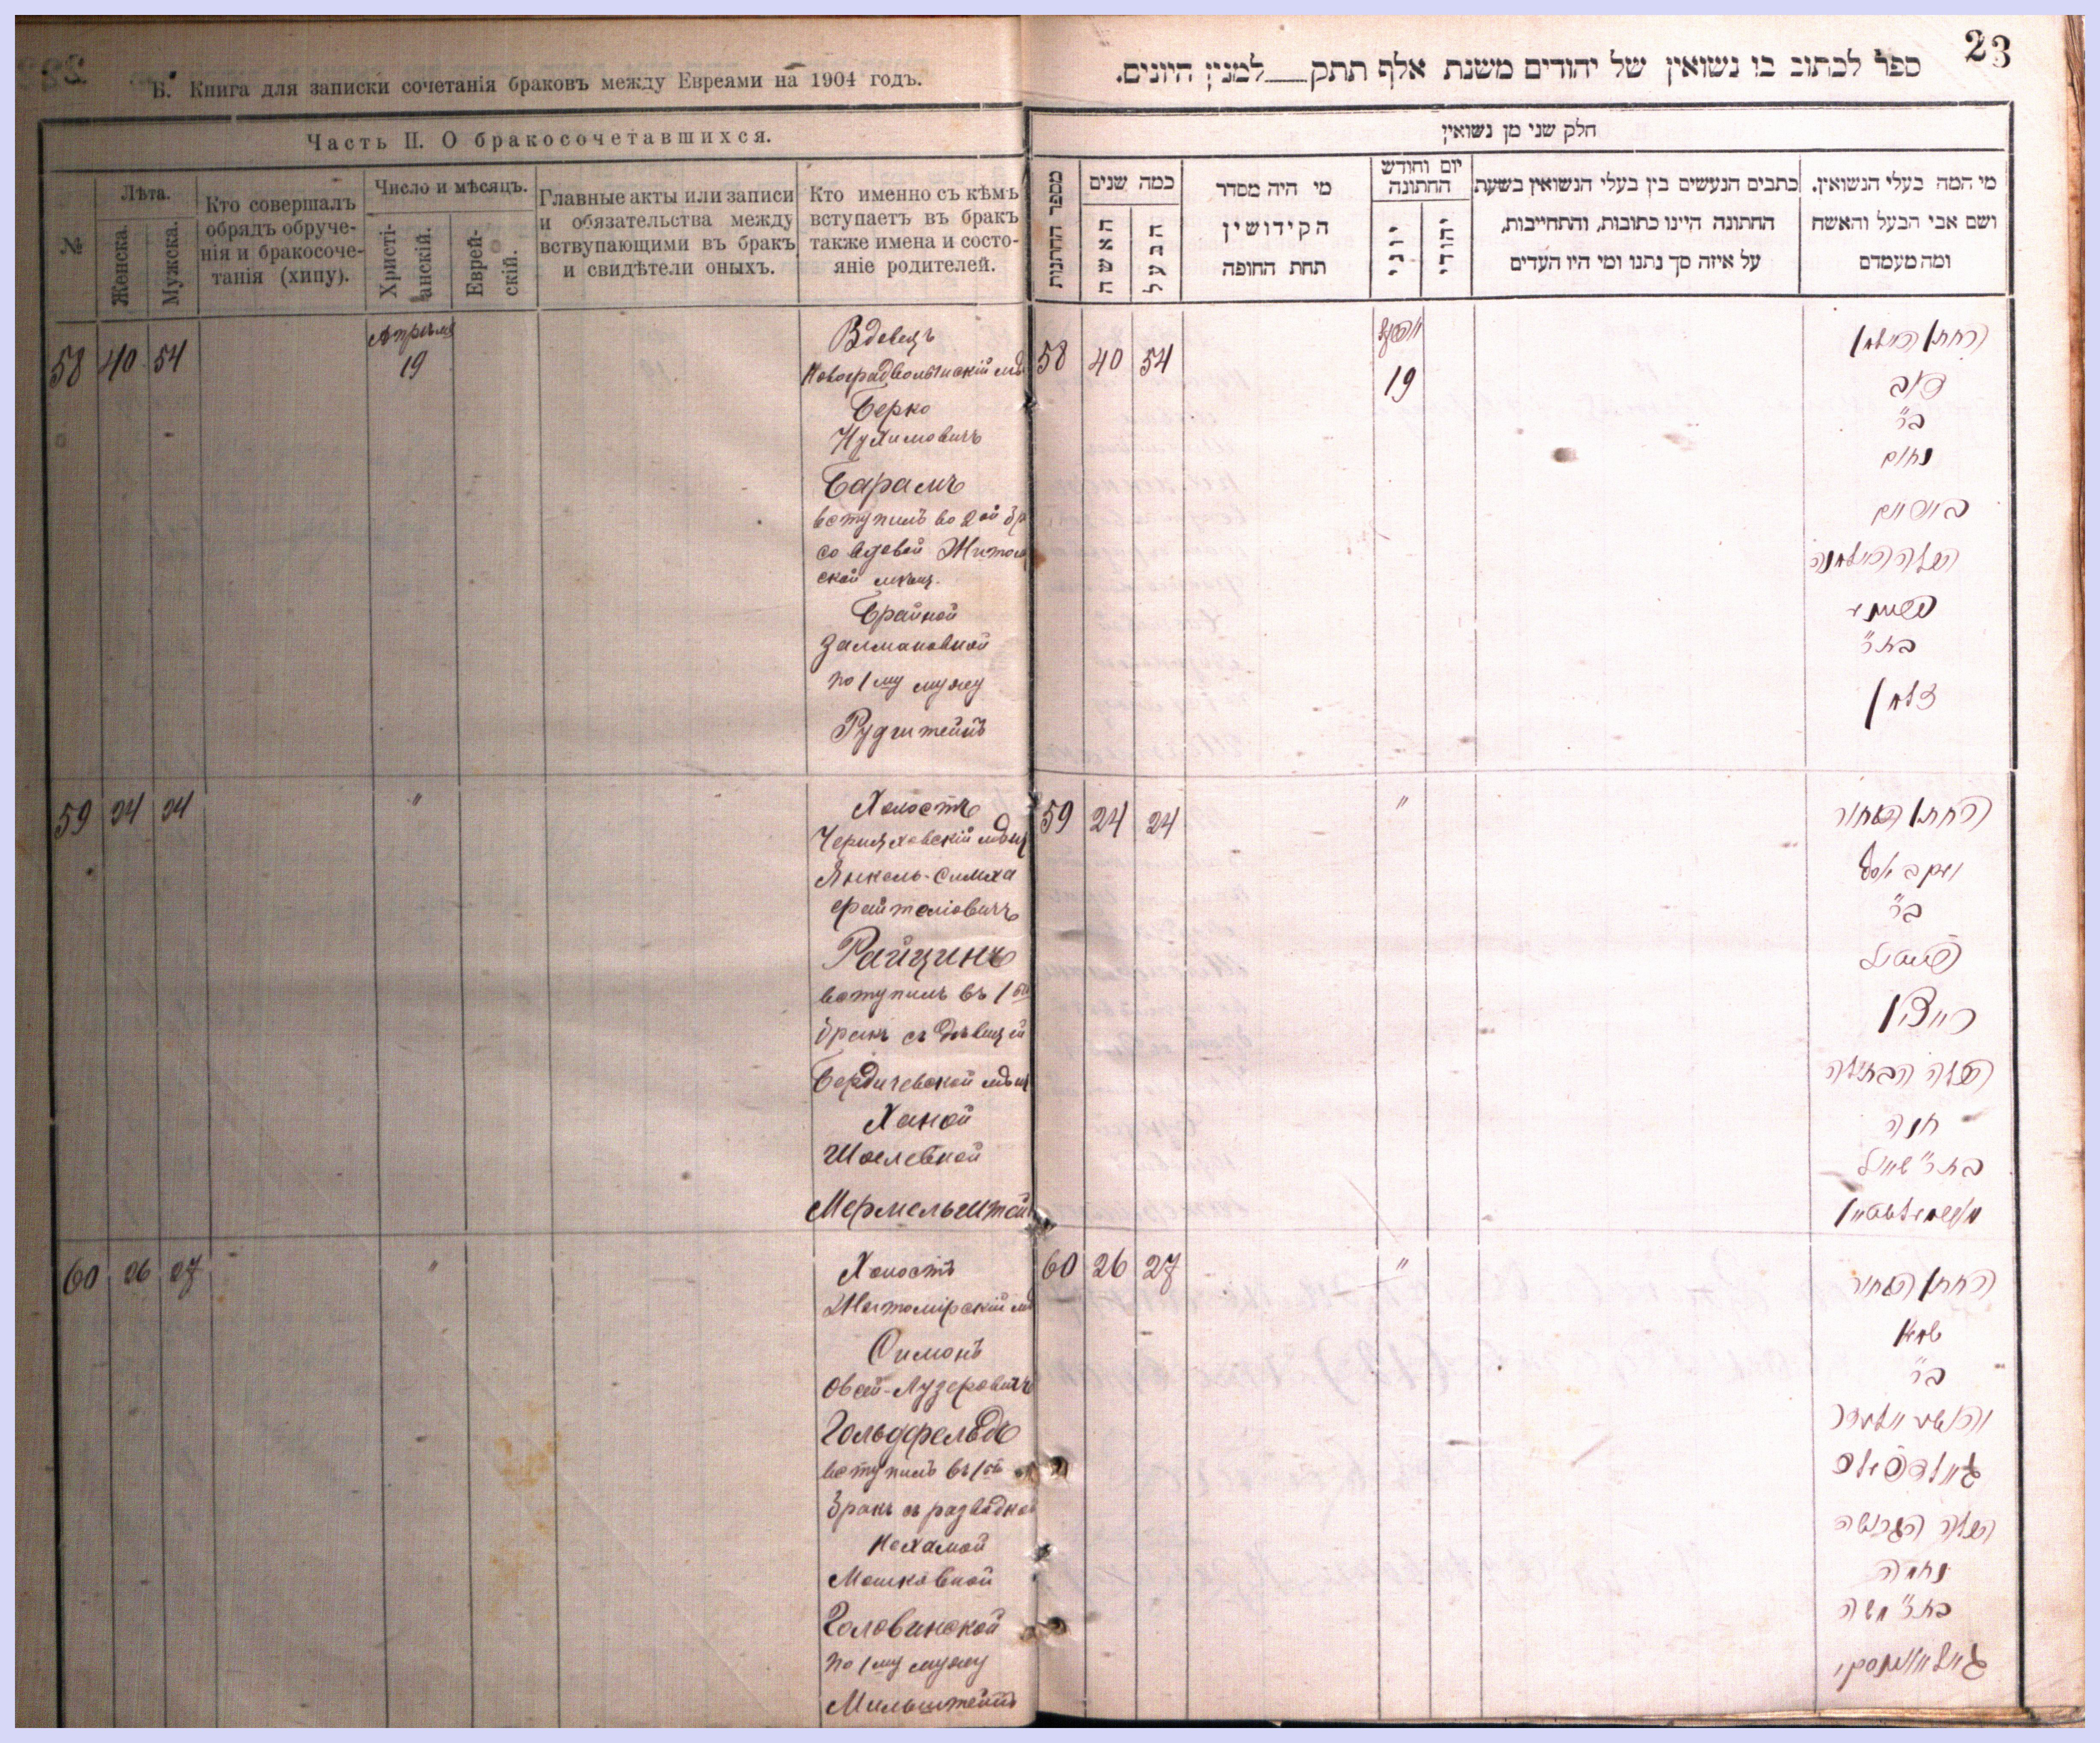 Б. Книга для записки сочетанія браковъ между Евреями на 1904 годъ.
Часть II. О бракосочетавшихся.
№
Лѣта.
Женска.
Мужеска.
Кто совершалъ
обрядъ обруче-
нія и бракосоче-
танія (хипу).
Число и мѣсяцъ.
Христі-
анскій.
Еврей-
скій.
Главные акты или записи
и обязательства между
вствупающими въ бракъ
и свидѣтели оныхъ.
Кто именно съ кѣмъ
вступаетъ въ бракъ
также имена и состо-
яніе родителей.
58 40 54
Апрѣля
19
Вдовецъ
Новоградволынскій мѣ
Берко
Нухимовичъ
Барамъ
вступилъ во 2ой бр
со вдовой Житом
ской мѣщ.
Брайной
Залмановной
по 1му мужу
Рудштейнъ
59 24 24
"
Холостъ
Черняховскій мѣщ
Янкель-Симха
Райцинъ
вступилъ въ 1ый
бракъ съ дѣвицей
Бердичевской мѣщ
Ханой
Шоелевной
Мермельштей
60 26 27
"
Холостъ
Житомірскій мѣ
Симонъ
Овсей-Лузеровичъ
Гольдфельдъ
вступилъ въ 1ый
бракъ съ разводкой
Нехамой
Мошковной
Головинской
по 1му мужу
Мильштейнъ
23
ספר לכתוב בו נשואין של יהודים משנת אלף תתק למנין היונים.
חלק שני מן נשואין
מספר החתנות
כמה שנים
האשה
הבעל
מי היה מסדר
הקידושין
תחת החופה
יום וחודש
החתונה
יוני
יהודי
כתבים הנעשים בין בעלי הנשואין בשעת
החתונה היינו כתובות, והתחייבות,
על איזה סך נתנו ומי היו העדים
מי המה בעלי הנשואין.
ושם אבי הבעל והאשה
ומה מעמדם
58 40 54
אפריל
19
החתן האלמן
דוב
ב"ר
נחום
באראם
הכלה האלמנה
בריינא
בת ר'
זלמן
59 24 24
"
החתן הבחור
ב"ר
רייצין
הכלה הבתולה
חנה
בת ר' שאול
מערמעלשטיין
60 26 27
"
החתן הבחור
ב"ר
גאלדפעלד
הכלה הגרושה
נחמה
בת ר' משה
גאלאווינסקי